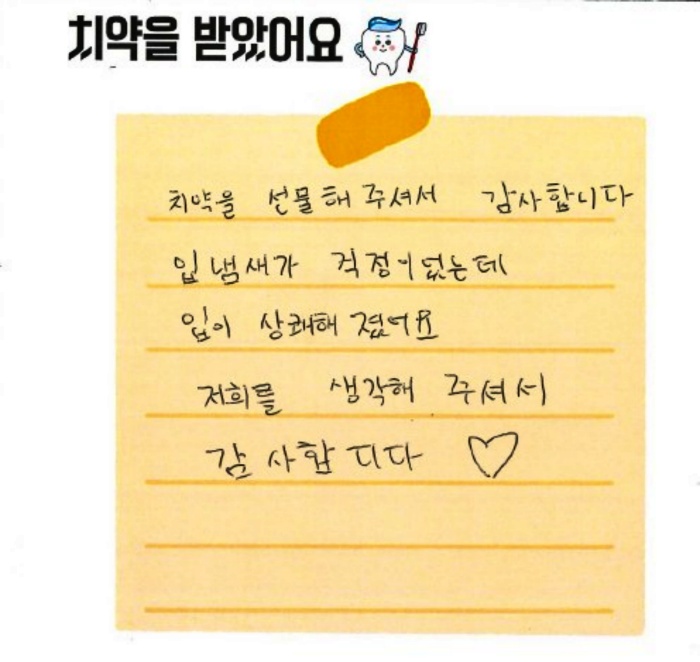 치약을 받았어요
치약을 선물해 주셔서 감사합니다
입냄새가 걱정이었는데
입이 상쾌해 졌어요
저희를 생각해 주셔서
감사합디다 ♡